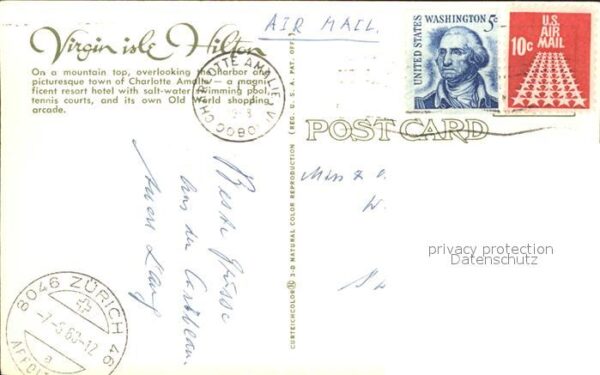 AIR MAIL.
Virgin isle Hilton
On a mountain top, overlooking the harbor and
picturesque town of Charlotte Amalie — a magni-
ficent resort hotel with salt-water swimming pool,
tennis courts, and its own Old World shopping
arcade.
CHARLOTTE AMALIE, V.I.
00801
UNITED STATES WASHINGTON 5c
U.S.
AIR
MAIL
10c
POST CARD
Beste Grüsse
aus der Caribbean
CURTEICHCOLOR 3-D NATURAL COLOR REPRODUCTION (REG. U.S.A. PAT. OFF.)
Miss
W.
privacy protection
Datenschutz
8046 ZÜRICH 46
a